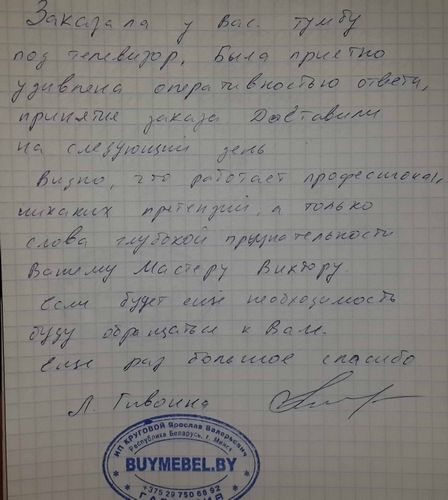 Заказала у Вас. тумбу
под телевизор. Была приятно
удивлена оперативностью ответа,
принятие заказа Доставили
на следующий день
Видно, что работает професионал,
никаких претензий, а только
слова глубокой признательности
Вашему Мастеру Виктору.
Если будет еще необходимость
буду обращаться к Вам.
Еще раз большое спасибо
Л.
ИП КРУГОВОЙ Ярослав Валерьевич
Республика Беларусь, г. Минск
BUYMEBEL.BY
+375 29 750 66 92